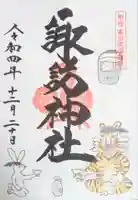 諏訪神社
令和四年
十二月二十日